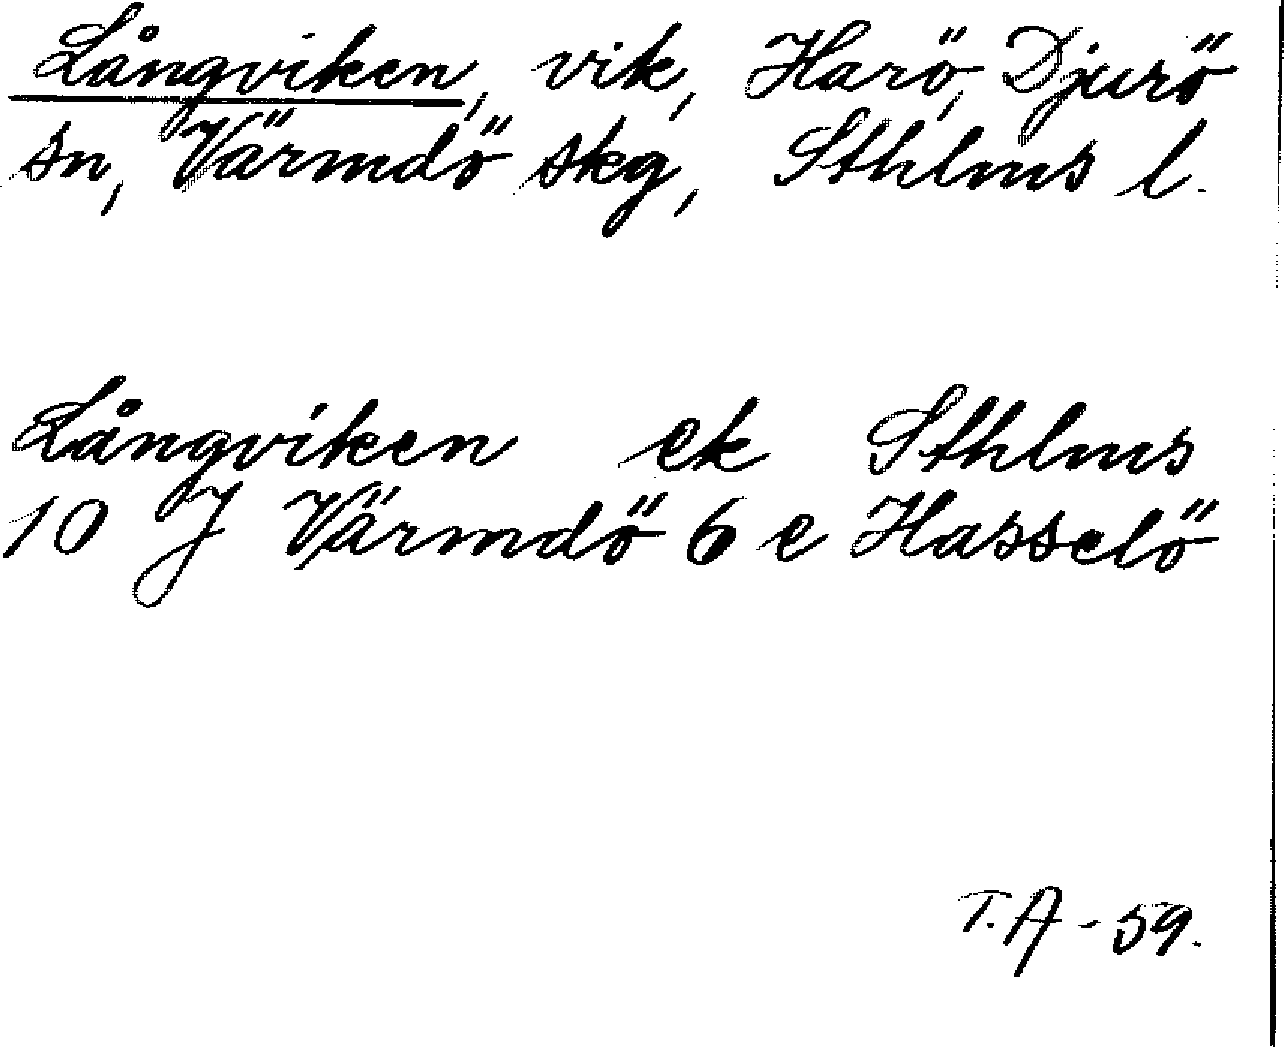 Långviken, vik, Harö, Djurö
sn, Värmdö skg, Sthlms l.
Långviken ek Sthlms
10 J Värmdö 6 e Hasselö
T.A - 59.